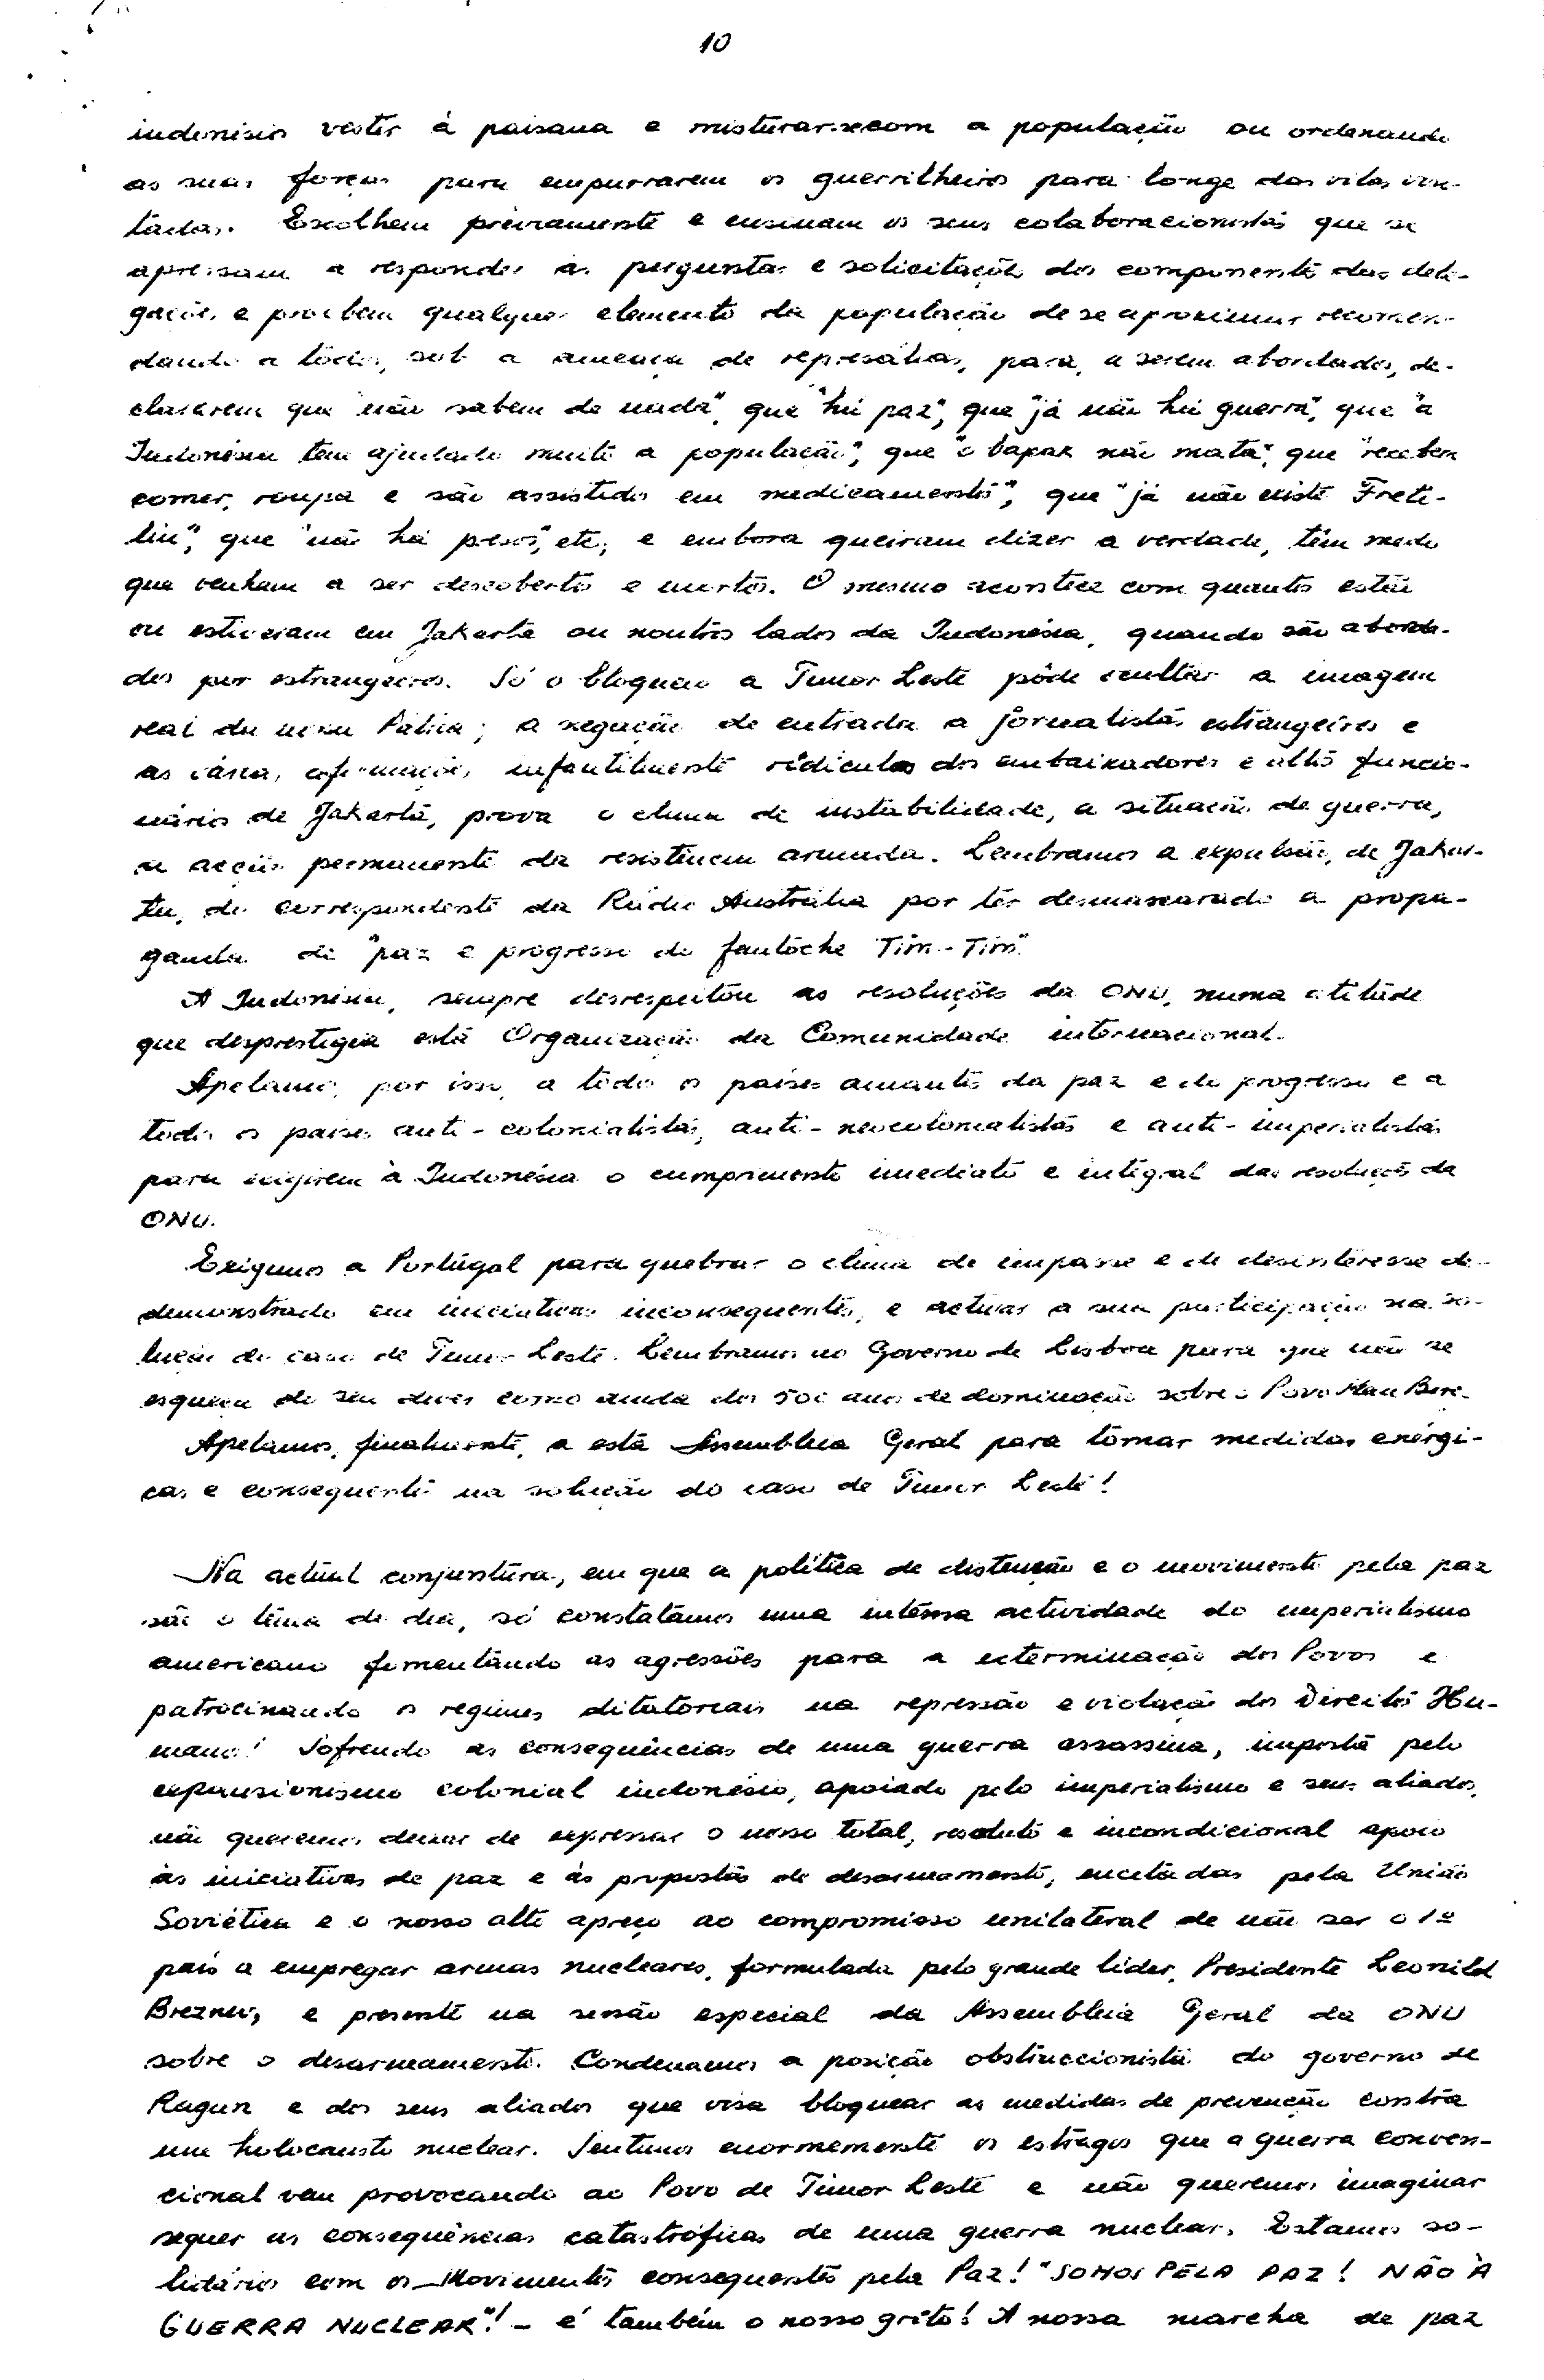 10
indonésios vestir à paisana e misturar-se com a população ou ordenando
as suas forças para empurrarem os guerrilheiros para longe das vilas visi-
tadas. Escolhem préviamente e ensinam os seus colaboracionistas que se
apressam a responder às perguntas e solicitações dos componentes das dele-
gações e proíbem qualquer elemento da população de se aproximar, recomen-
dando a todos, sob a ameaça de represálias, para, a serem abordados, de-
clararem que "não sabem de nada", que "há paz", que "já não há guerra", que "a
Indonésia tem ajudado muito a população", que "o bapak não mata", que "recebem
comer, roupa e são assistidos em medicamentos", que "já não existe Freti-
lin", que "não há presos", etc; e embora queiram dizer a verdade, têm medo
que venham a ser descobertos e mortos. O mesmo acontece com quantos estão
ou estiveram em Jakarta ou noutros lados da Indonésia, quando são aborda-
dos por estrangeiros. Só o bloqueio a Timor Leste pôde ocultar a imagem
real da nossa Pátria; a negação de entrada a jornalistas estrangeiros e
as várias afirmações infantilmente ridículas dos embaixadores e altos funcio-
nários de Jakarta, prova o clima de instabilidade, a situação de guerra,
a acção permanente da resistência armada. Lembramos a expulsão, de Jakar-
ta, do correspondente da Rádio Austrália por ter desmascarado a propa-
ganda de "paz e progresso do fantoche Tim-Tim".
A Indonésia, sempre desrespeitou as resoluções da ONU, numa atitude
que desprestigia esta Organização da Comunidade internacional.
Apelamos, por isso, a todos os países amantes da paz e do progresso e a
todos os países anti-colonialistas, anti-neocolonialistas e anti-imperialistas
para exigirem à Indonésia o cumprimento imediato e integral das resoluções da
ONU.
Exigimos a Portugal para quebrar o clima de impasse e de desinteresse de-
demonstrado em iniciativas inconsequentes, e activar a sua participação na so-
lução do caso de Timor Leste. Lembramos ao Governo de Lisboa para que não se
esqueça do seu dever como ainda dos 500 anos de dominação sobre o Povo Mau Bere.
Apelamos, finalmente, a esta Assembleia Geral para tomar medidas enérgi-
cas e consequentes na solução do caso de Timor Leste!
Na actual conjuntura, em que a política de distenção e o movimento pela paz
são o tema do dia, só constatamos uma intensa actividade do imperialismo
americano fomentando as agressões para a exterminação dos Povos e
patrocinando os regimes ditatoriais na repressão e violação dos Direitos Hu-
manos! Sofrendo as consequências de uma guerra assassina, imposta pelo
expansionismo colonial indonésio, apoiado pelo imperialismo e seus aliados,
não queremos deixar de expressar o nosso total, resoluto e incondicional apoio
às iniciativas de paz e às propostas de desarmamento, encetadas pela União
Soviética e o nosso alto apreço ao compromisso unilateral de não ser o 1º
país a empregar armas nucleares, formulada pelo grande líder, Presidente Leonild
Breznev, e presente na sessão especial da Assembleia Geral da ONU
sobre o desarmamento. Condenamos a posição obstruccionista do governo de
Ragun e dos seus aliados que visa bloquear as medidas de prevenção contra
um holocausto nuclear. Sentimos enormemente os estragos que a guerra conven-
cional vem provocando ao Povo de Timor Leste e não queremos imaginar
sequer as consequências catastróficas de uma guerra nuclear. Estamos so-
lidários com os Movimentos consequentes pela Paz! "SOMOS PELA PAZ! NÃO À
GUERRA NUCLEAR"! - é também o nosso grito! A nossa marcha de paz